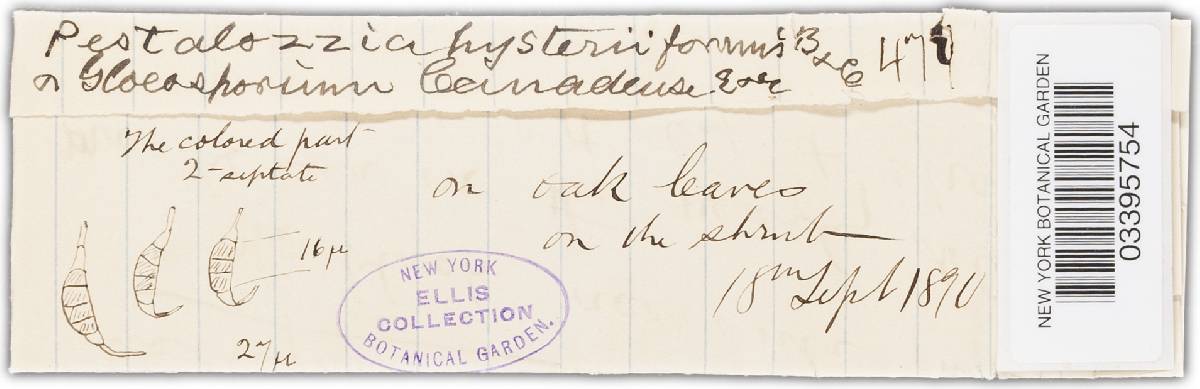 Pestalozzia hysteriiformis B & C 47
or Gloeosporium Canadense E&E
The colored part
2-septate
on oak leaves
on the shrub
16µ
18th Sept 1890
27µ
NEW YORK
ELLIS
COLLECTION
BOTANICAL GARDEN.
NEW YORK BOTANICAL GARDEN
03395754